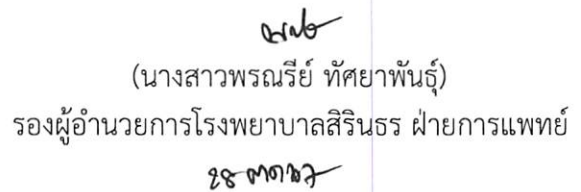 (นางสาวพรณรีย์ ทัศยาพันธุ์)
รองผู้อำนวยการโรงพยาบาลสิรินธร ฝ่ายการแพทย์